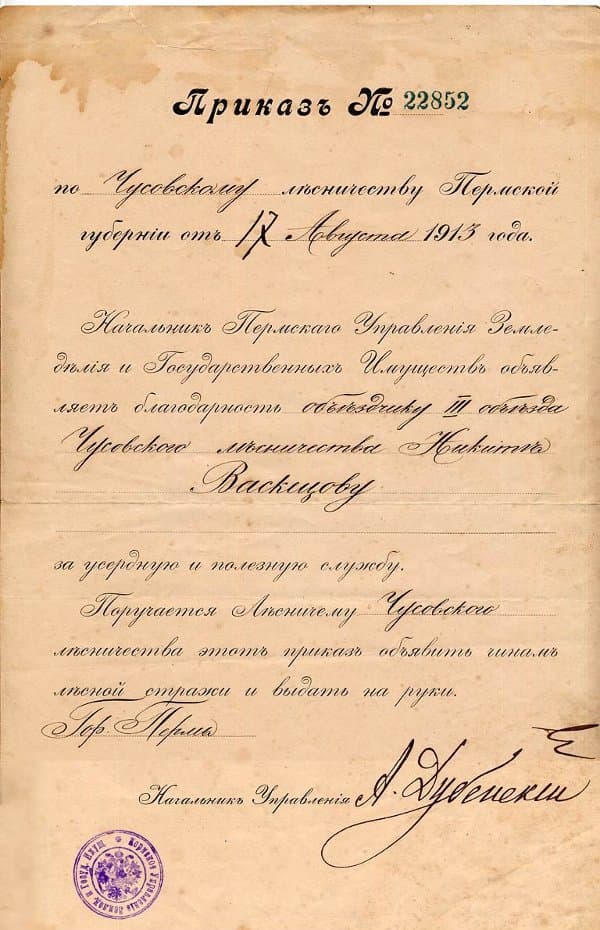 Приказъ № 22852
по Чусовскому лѣсничеству Пермской
губерніи отъ 17 Августа 1913 года.
Начальникъ Пермскаго Управленія Земле-
дѣлія и Государственныхъ Имуществъ объяв-
ляетъ благодарность объѣздчику III объѣзда
Чусовского лѣсничества Никитѣ
Васкецову
за усердную и полезную службу.
Поручается Лѣсничему Чусовского
лѣсничества этотъ приказъ объявить чинамъ
лѣсной стражи и выдать на руки.
Гор. Пермь
Начальникъ Управленія А. Дубенскій
Пермское Управленіе Землед. и Госуд. Имущ.